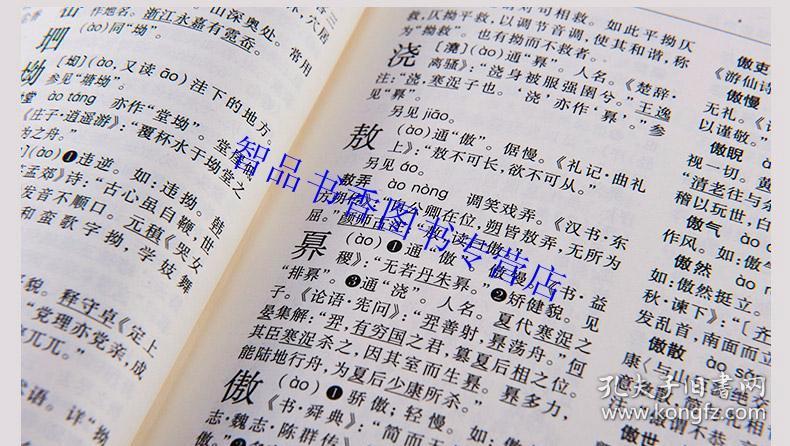 作地名。浙江永嘉有
山深奥处。常用
(ào)同“坳”。
坳
(ào，又读āo)洼下的地方。
参见“塘坳”。
āo táng 亦作“堂坳”。
《庄子·逍遥游》：“覆杯水于坳堂之
为之舟。”
(ào)❶违逆。如：违拗。韩
孟郊》诗：“古心虽自鞭，世
发音不顺口。元稹《哭女
和蛮歌字拗，学妓舞
貌。释守卓《定上
“党理亦党亲，成
兀兀。”
详“拗
仄拗平救。以调节音调，使其和谐，称
为“拗救”。也有拗而不救者。
浇
(ào)通“奡”。人名。《楚辞·
离骚》：“浇身被服强圉兮。”王逸
注：“浇，寒浞子也。‘浇’亦作‘奡’。”参
见“奡”。
另见jiāo。
敖
(ào)通“傲”。倨慢。《礼记·曲礼
上》：“敖不可长，欲不可从。”
另见áo。
敖弄 ào nòng 调笑戏弄。《汉书·东
方朔传》：“自公卿在位，朔皆敖弄，无所为
屈。”颜师古
奡
(ào)❶通“傲”。傲慢。《书·益
稷》：“无若丹朱奡。”❷矫健貌。见
“排奡”。❸通“浇”。人名。夏代寒浞之
子。《论语·宪问》：“羿善射，奡荡舟。”何
晏集解：“羿，有穷国之君，篡夏后相之位。
其臣寒浞杀之，因其室而生奡。奡多力，
能陆地行舟，为夏后少康所杀。”
傲
(ào)❶骄傲；轻慢。如：
《书·舜典》：“简而无
志·魏志·陈群传
傲吏
《游仙诗
傲慢
无礼。《
以谨敬。”
傲睨
视一切。黄
“清老往与
稽以玩世，白
傲气 ào
作风。如：傲
傲然 ào
如：傲然挺立。
秋·谏下》：“[齐
发乱首，南面而立
傲散 ào sǎn
康《与山
智品书香图书专营店
孔夫子旧书网
www.kongfz.com